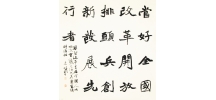 當好全國
改革開放
排頭兵創
新發展先
行者